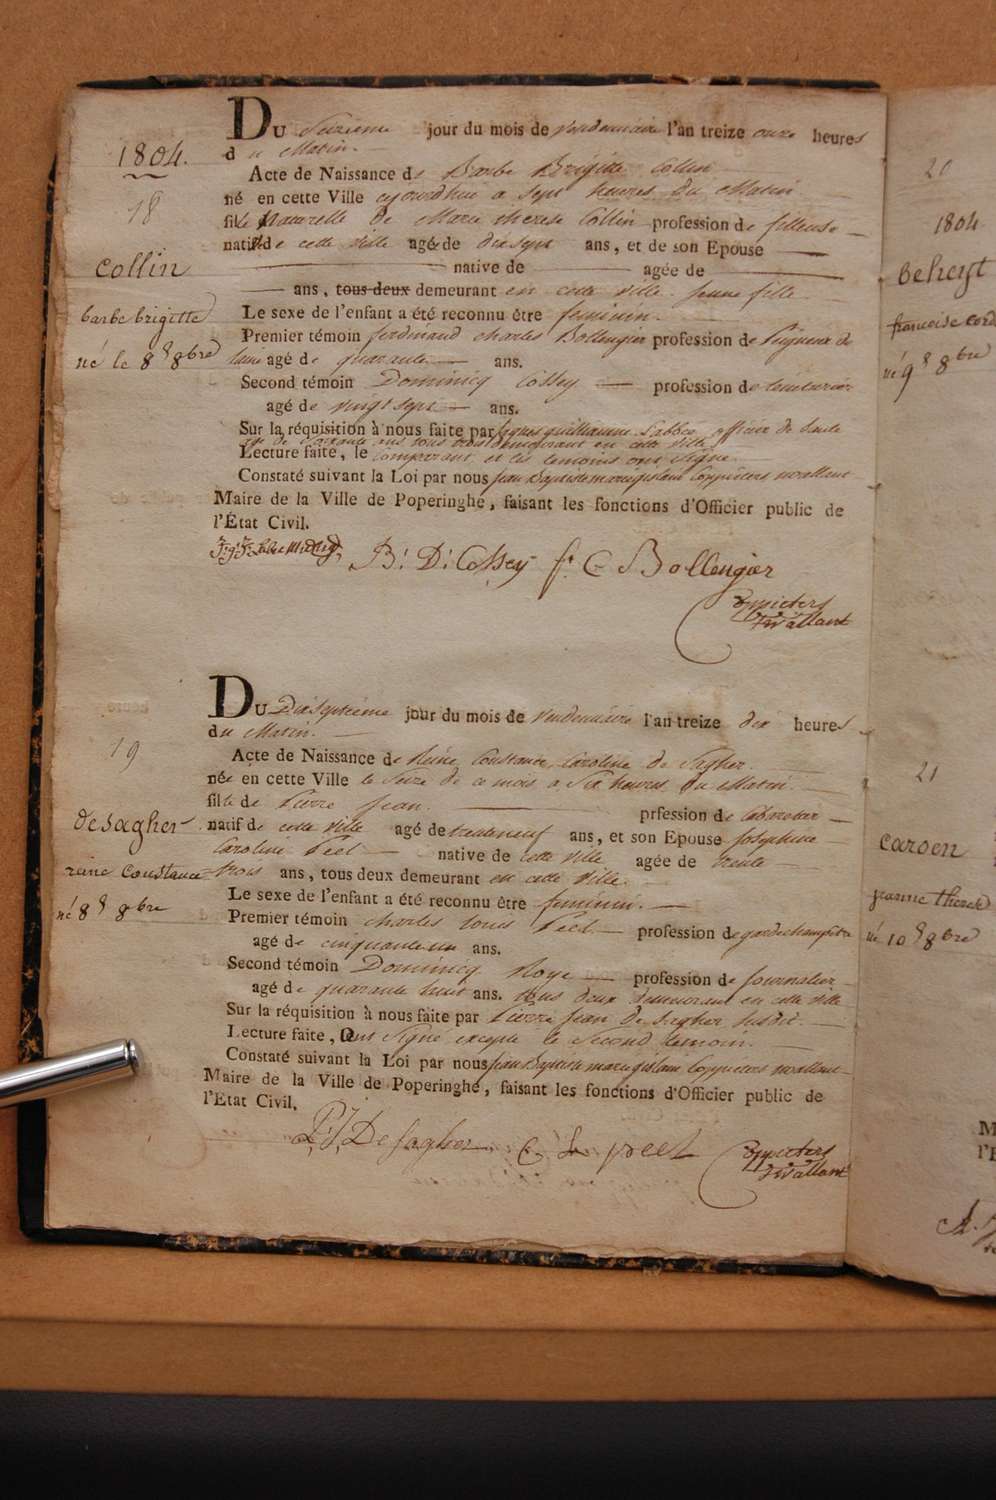 1804.
18
Collin
barbe brigitte
né le 8 8bre
Du Seizieme jour du mois de Vendemiaire l'an treize onze heures
du Matin.
Acte de Naissance de Barbe Brigitte Collin
né en cette Ville cejourdhui a sept heures du Matin
fille Naturelle de Marie therese Collin profession de filleuse
natif de cette ville agée de dix sept ans, et de son Epouse
native de agée de
ans, tous deux demeurant en cette ville. jeune fille
Le sexe de l'enfant a été reconnu être feminin.
Premier témoin ferdinand charles Bollengier profession de Peigneur de
laine agé de quarante ans.
Second témoin Dominicq Cossey profession de teinturier
agé de vingt sept ans.
Sur la réquisition à nous faite par guillaume officier de Santé
agé de ans tous trois demeurant en cette ville
Lecture faite, le Comparant et les temoins ont Signé.
Constaté suivant la Loi par nous Jean Baptiste marie gislain Coppieters wallant
Maire de la Ville de Poperinghe, faisant les fonctions d'Officier public de
l'État Civil.
B: D: Cossey f. C Bollengier
Coppieters
twallant
19
desagher
reine Constance
né 8 8bre
Du Dixseptieme jour du mois de Vendemiaire l'an treize dix heures
du Matin.
Acte de Naissance de Reine Constance Caroline de Sagher.
née en cette Ville le Seize de ce mois a Six heures du Matin.
fille de Pierre Jean. prfession de Cabaretier
natif de cette ville agé de trenteneuf ans, et son Epouse Josephine
Caroline Peel native de cette ville agée de trente
trois ans, tous deux demeurant en cette Ville.
Le sexe de l'enfant a été reconnu être feminin.
Premier témoin charles louis Peel profession de gardechampetre
agé de cinquante un ans.
Second témoin Dominicq Noye profession de Journalier
agé de quarante huit ans. tous deux demeurant en cette ville
Sur la réquisition à nous faite par Pierre Jean de Sagher susdit.
Lecture faite, Ont Signé excepté le Second temoin.
Constaté suivant la Loi par nous Jean Baptiste marie gislain Coppieters wallant
Maire de la Ville de Poperinghe, faisant les fonctions d'Officier public de
l'Etat Civil.
P: J: DeSagher C L peel
Coppieters
twallant
20
1804
beheyt
francoise
né 9 8bre
21
caroen
jeanne therese
né 10 8bre